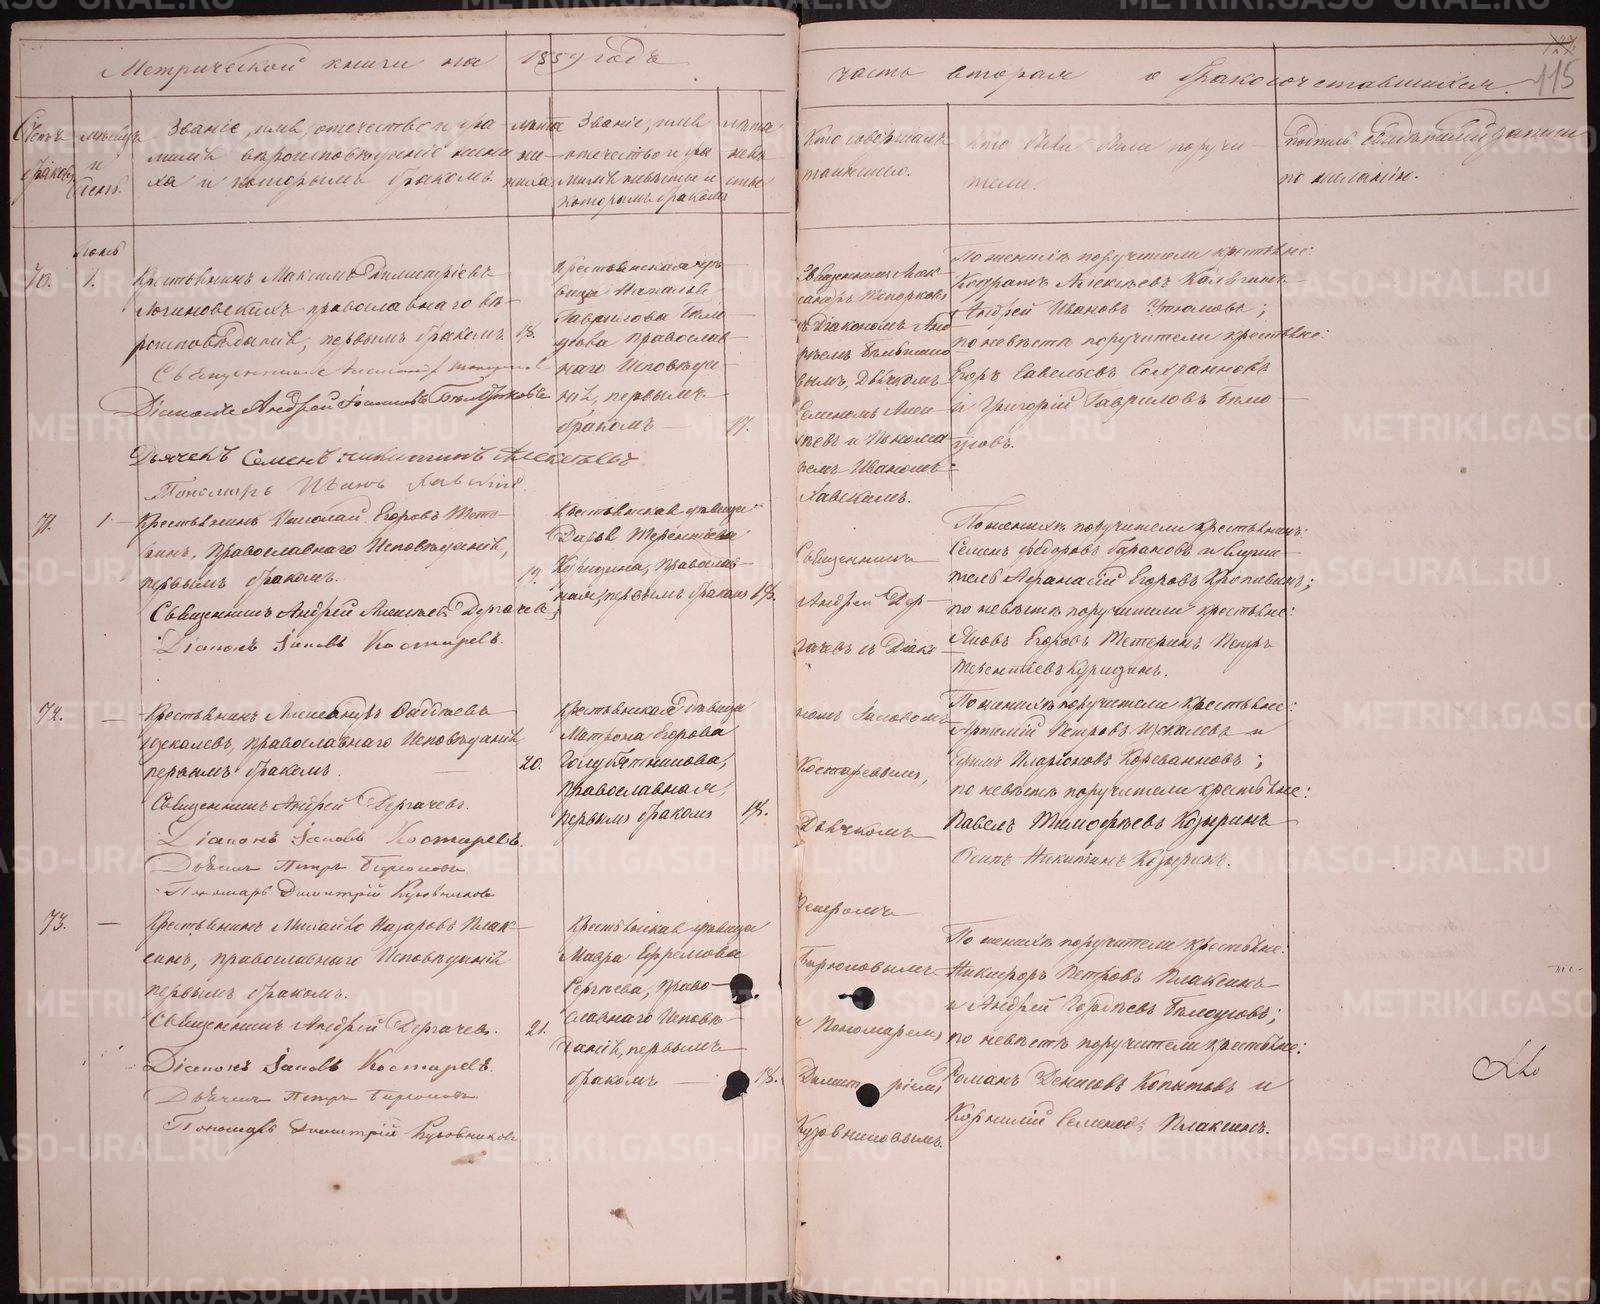 Метрической книги на 1859 годъ
часть вторая о бракосочетавшихся.
115
Счетъ браковъ
мѣсяцъ и день
Званіе, имя, отечество и фа-
милія вѣроисповѣданіе жени-
ха и которымъ бракомъ.
лѣта жениха
Званіе, имя
отечество и фа
милія невѣсты и
которымъ бракомъ
лѣта невѣсты
Кто совершалъ
таинство.
Кто были поручи-
тели.
подпись свидѣтелей записи
по желанію.
70.
1.
Крестьянинъ Максимъ Димитріевъ
православнаго вѣ-
роисповѣданія, первымъ бракомъ.
18.
Священникъ
Діаконъ Андрей
Дьячекъ Семенъ Никитинъ Алексѣевъ
Пономарь Иванъ
Крестьянская дѣ-
вица Наталья
Гаврилова Бѣло-
усова православ-
наго исповѣда-
нія, первымъ
бракомъ — 17.
Священникъ Алек-
сандръ Топорковъ
съ Діакономъ Анд-
реемъ
вымъ, Дьячкомъ
Семеномъ Алек-
сѣевъ и Понома-
ремъ Иваномъ
По женихѣ поручители крестьяне:
Кодратъ Алексѣевъ Калыгинъ
Андрей Ивановъ Устюговъ;
по невѣстѣ поручители крестьяне:
Егоръ Савельевъ
и Григорій Гавриловъ Бѣло-
усовъ.
71.
1.
Крестьянинъ Николай Егоровъ Мете-
ринъ, Православнаго Исповѣданія,
первымъ бракомъ.
19.
Священникъ Андрей Алексѣевъ Дергачевъ
Діаконъ Іаковъ Костаревъ.
Крестьянская дѣвица
Дарья Терентьева
Курицина, Православ-
ная, первымъ бракомъ 18.
Священникъ
Андрей Дер-
гачевъ съ Діако-
номъ Іаковомъ
Костаревымъ,
Дьячкомъ
Петромъ
Бирюковымъ
и Пономаремъ
Димитріемъ
Кузовниковымъ.
По женихѣ поручители крестьянинъ
Семенъ Федоровъ Барановъ и служи-
тель Афанасій Егоровъ Кропивинъ;
по невѣстѣ поручители крестьяне:
Яковъ Егоровъ Метеринъ Петръ
Терентьевъ Курицинъ.
72.
—
Крестьянинъ Александръ Фаддѣевъ
Щекалевъ, православнаго Исповѣданія
первымъ бракомъ.
20.
Священникъ Андрей Дергачевъ.
Діаконъ Іаковъ Костаревъ.
Дьячекъ Петръ Бирюковъ
Пономарь Димитрій Кузовниковъ
Крестьянская дѣвица
Матрона Егорова
Голубятникова,
православная,
первымъ бракомъ 18.
По женихѣ поручители крестьяне:
Артемій Петровъ Щекалевъ и
Ефимъ Иларіоновъ Кореванновъ;
по невѣстѣ поручители крестьяне:
Павелъ Тимофѣевъ Козыринъ
Осипъ Никитинъ Козыринъ.
73.
—
Крестьянинъ Михайло Назаровъ Плак-
синъ, православнаго Исповѣданія
первымъ бракомъ.
21.
Священникъ Андрей Дергачевъ.
Діаконъ Іаковъ Костаревъ.
Дьячекъ Петръ Бирюковъ
Пономарь Димитрій Кузовниковъ
Крестьянская дѣвица
Мавра Ефремова
Сергѣева, Право-
славнаго Исповѣ-
данія, первымъ
бракомъ — 18.
По женихѣ поручители крестьяне:
Никифоръ Петровъ Плаксинъ
и Андрей Гордѣевъ Бѣлоусовъ;
по невѣстѣ поручители крестьяне:
Романъ Денисовъ Копытовъ и
Корнилій Семеновъ Плаксинъ.
METRIKI.GASO-URAL.RU